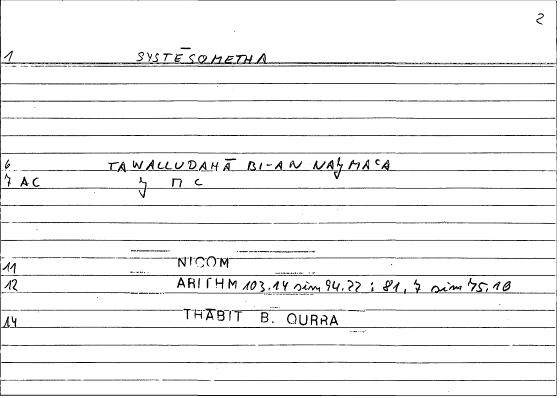 2
1 SYSTĒSOMETHA
6 TAWALLUDAHĀ BI-AN NAʒMAᶜA
7 AC ʒ M C
11 NICOM
12 ARITHM 103.14 sim 94.22 ; 81,7 sim 75.10
14 THĀBIT B. QURRA